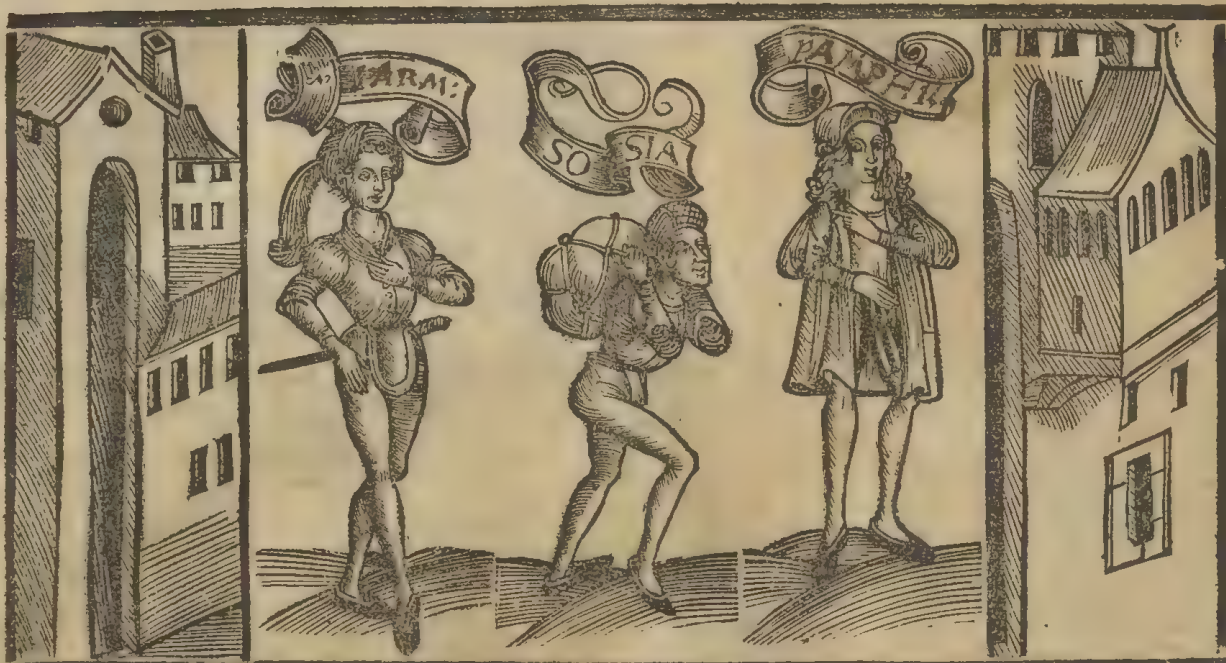 PARM:
SO SIA
PAMPHIL